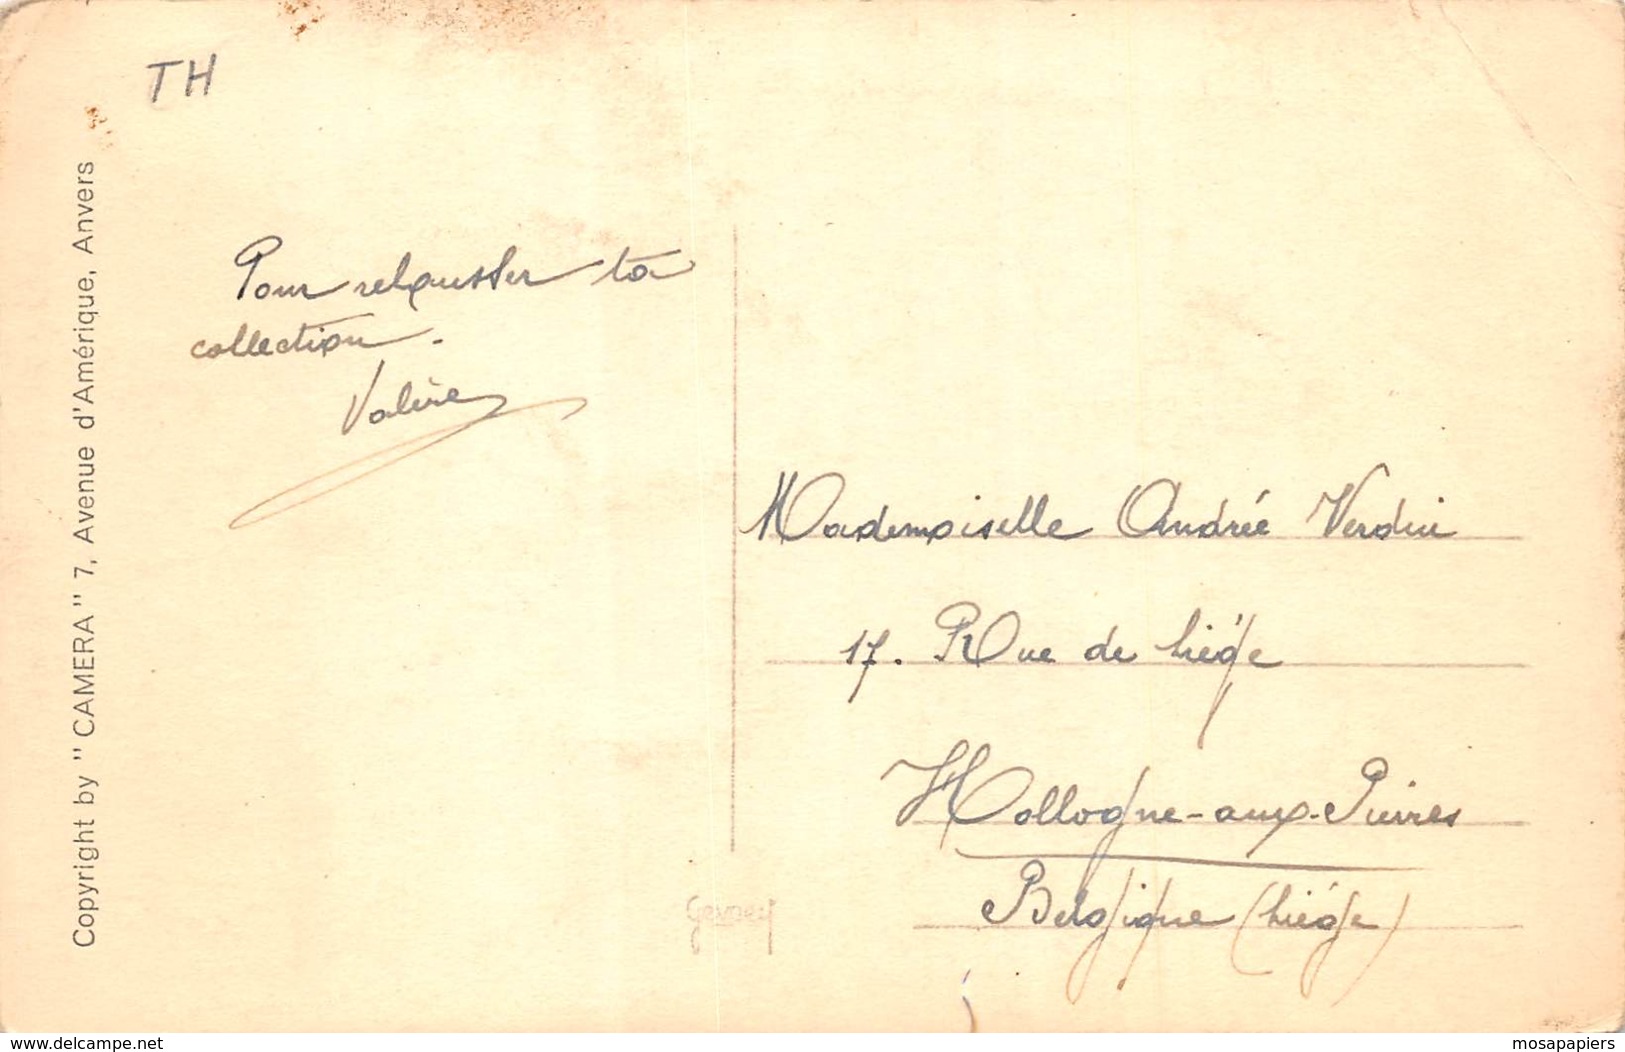 TH
Copyright by "CAMERA" 7, Avenue d'Amérique, Anvers
Pour rehausser ta
collection.
Valère
Mademoiselle Andrée Verdin
17. Rue de Liége
Hollogne-aux-Pierres
Belgique (Liége)
www.delcampe.net
mosapapiers